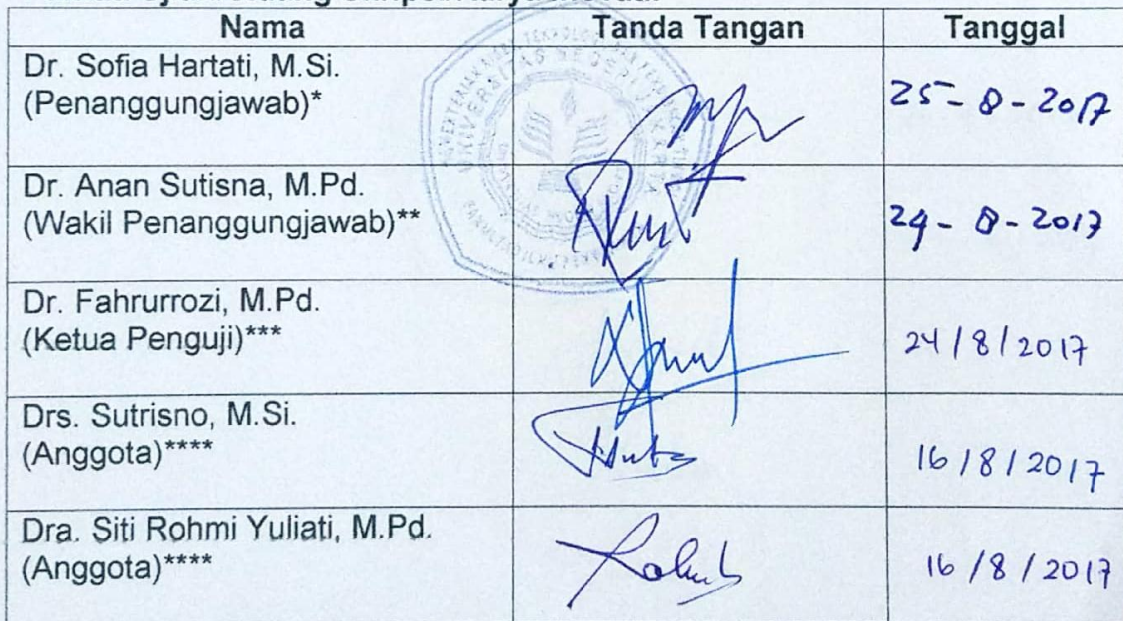 Nama Tanda Tangan Tanggal
Dr. Sofia Hartati, M.Si.
(Penanggungjawab)* 25-8-2017
Dr. Anan Sutisna, M.Pd.
(Wakil Penanggungjawab)** 24-8-2017
Dr. Fahrurrozi, M.Pd.
(Ketua Penguji)*** 24/8/2017
Drs. Sutrisno, M.Si.
(Anggota)**** 16/8/2017
Dra. Siti Rohmi Yuliati, M.Pd.
(Anggota)**** 16/8/2017